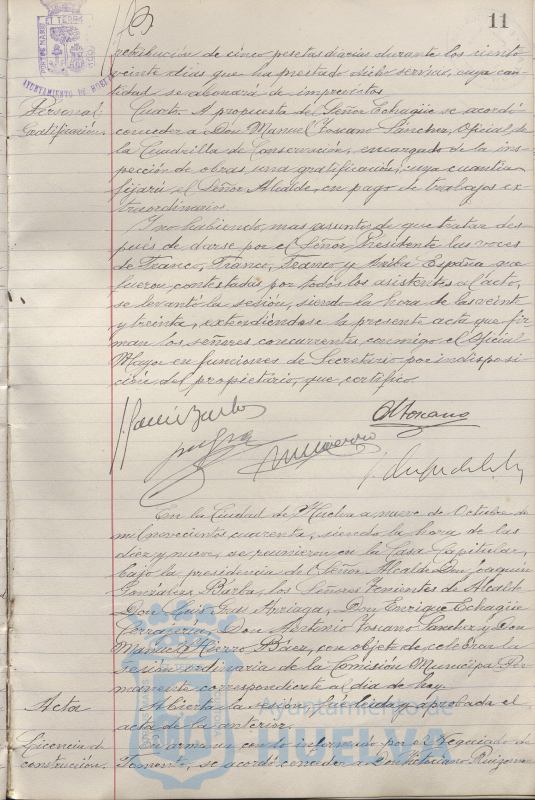 11
retribución de cinco pesetas diarias durante los ciento
veinte días que ha prestado dicho servicio, cuya can-
tidad se abonará de imprevistos.
Personal:
Gratificación.
Cuarto. A propuesta del Señor Echagüe se acordó
conceder a Don Manuel Toscano Sánchez, Oficial de
la Cuadrilla de Conservación, encargado de la ins-
pección de obras una gratificación, cuya cuantía
fijará el Señor Alcalde, en pago de trabajos ex-
traordinarios.
Y no habiendo mas asuntos de que tratar des-
pués de darse por el Señor Presidente las voces
de Franco, Franco, Franco y Arriba España que
fueron contestadas por todos los asistentes al acto,
se levantó la sesión, siendo la hora de las veinte
y treinta, extendiéndose la presente acta que fir-
man los señores concurrentes conmigo el Oficial
Mayor en funciones de Secretario por indisposi-
ción del propietario, que certifico.
En la Ciudad de Huelva a nueve de Octubre de
mil novecientos cuarenta, siendo la hora de las
diez y nueve, se reunieron en la Casa Capitular,
bajo la presidencia del Señor Alcalde Don Joaquín
González Barba, los Señores Tenientes de Alcalde
Don Luis Arriaga, Don Enrique Echagüe
Don Antonio Toscano Sánchez y Don
Manuel Hierro Báez, con objeto de celebrar la
sesión ordinaria de la Comisión Municipal Per-
manente correspondiente al día de hoy.
Acta
Abierta la sesión, fué leída y aprobada el
acta de la anterior.
Licencia de
construcción.
En armonía con lo informado por el Negociado de
Fomento, se acordó conceder a Don
Ayuntamiento de
HUELVA